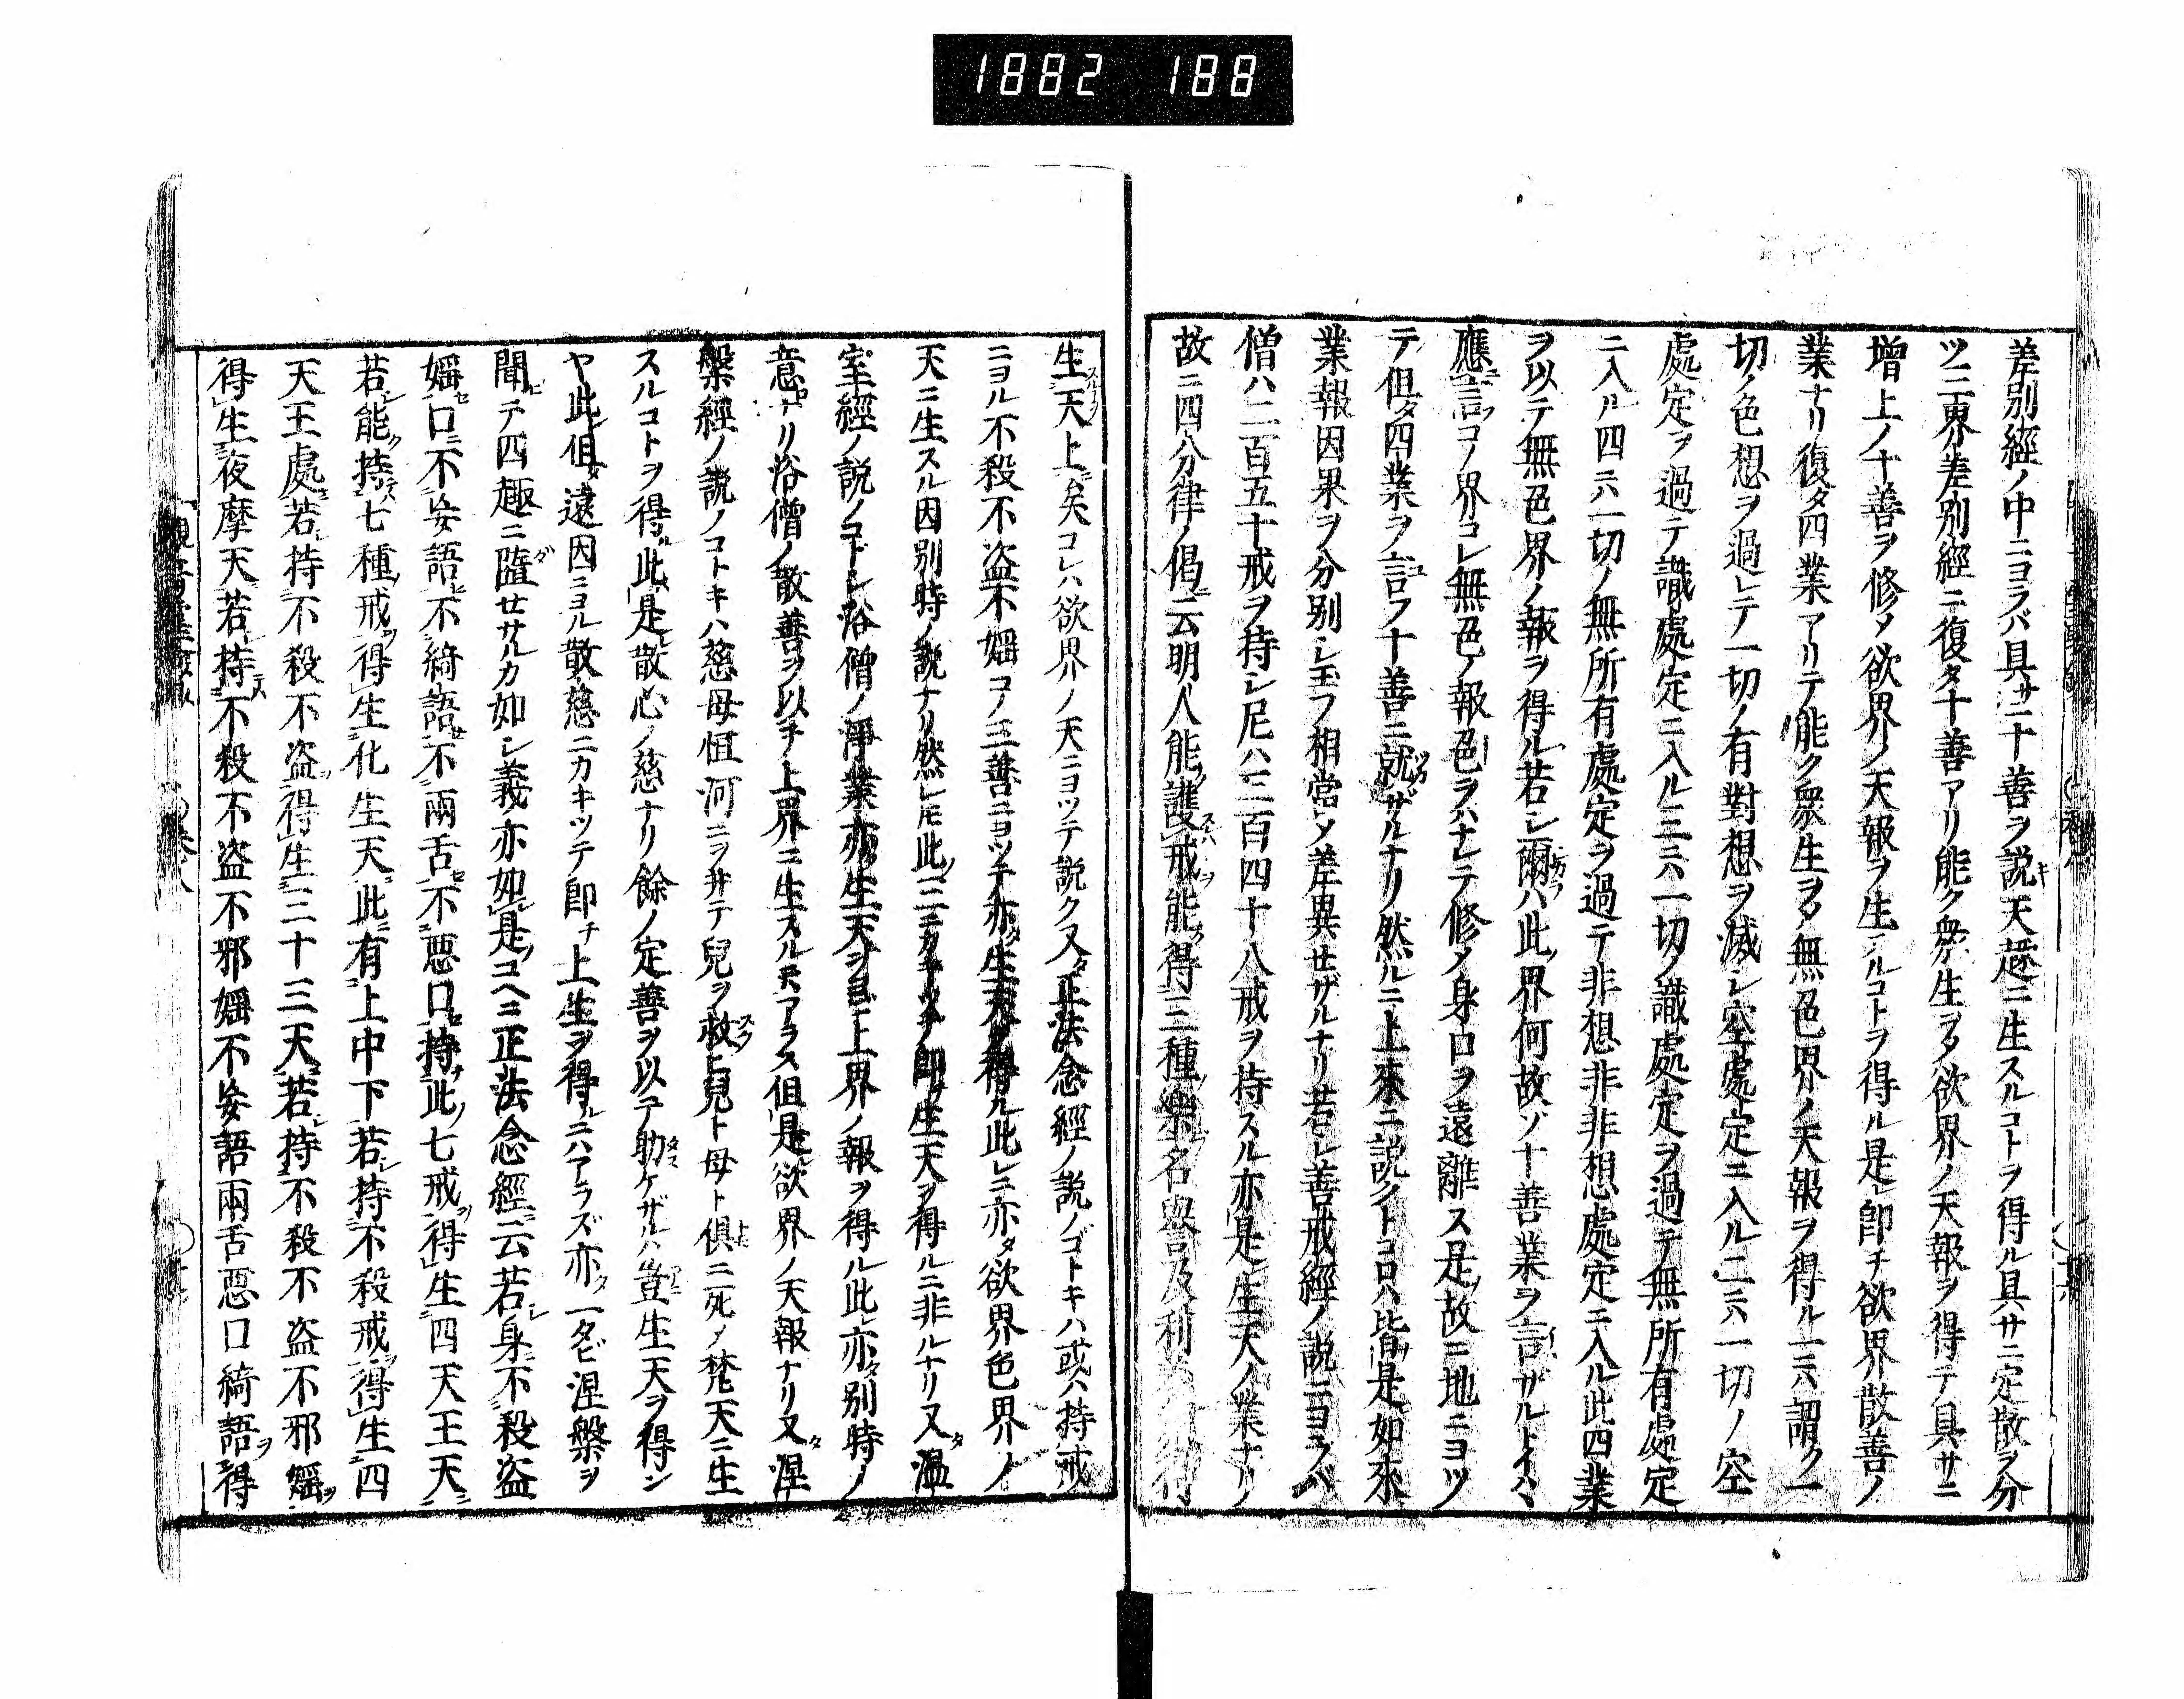 1882 188
差別經ノ中ニヨラバ具サニ十善ヲ説キ天趣ニ生スルコトヲ得ル具サニ定散ヲ分
ツ二界差別經ニ復タ十善アリ能ク衆生ヲメ欲界ノ天報ヲ得テ具サニ
增上ノ十善ヲ修メ欲界ノ天報ヲ生シルコトヲ得ル是レ卽チ欲界散善ノ
業ナリ復タ四業アリテ能ク衆生ヲメ無色界ノ天報ヲ得ル一六謂ク一
切ノ色想ヲ過レテ一切ノ有對想ヲ滅シ空處定ニ入ル二六一切ノ空
處定ヲ過テ識處定ニ入ル三六一切ノ識處定ヲ過テ無所有處定
ニ入ル四六一切ノ無所有處定ヲ過テ非想非非想處定ニ入ル此四業
ヲ以テ無色界ノ報ヲ得ル若シ爾ハ此界何故ゾ十善業ヲ言ザルトイハヽ
應言コノ界コレ無色ノ報色ヲハナレテ修メ身口ヲ遠離ス是故ニ地ニヨツ
テ但タ四業ヲ言フ十善ニ就ザルナリ然ルニ上來ニ説クトコロハ皆是如來
業報因果ヲ分別シ玉フ相當メ差異せザルナリ若シ善戒經ノ説ニヨラバ
僧ハ二百五十戒ヲ持シ尼ハ三百四十八戒ヲ持スル亦是生天ノ業ナリ
故ニ四分律ノ偈ニ云明人能護戒能得三種樂名譽及利
生天上矣コレハ欲界ノ天ニヨツテ説ク又正法念經ノ説ノゴトキハ或ハ持戒
ニヨル不殺不盗不婬コノ三善ニヨツテ亦生天ヲ得ル此レニ亦タ欲界色界ノ
天ニ生スル因別時ノ説ナリ然レモ此ノ三ニカキツテ卽生天ヲ得ルニ非ルナリ又温
室經ノ説ノコトシ浴僧ノ淨業亦生天ヲ上界ノ報ヲ得ル此亦タ別時ノ
意ナリ浴僧ノ散善ヲ以テ上界ニ生スルニアラス但是欲界ノ天報ナリ又タ涅
槃經ノ説ノコトキハ慈母恒河ニヲ井テ兒ヲ救上兒ト母ト俱ニ死メ梵天ニ生
スルコトヲ得此是散心ノ慈ナリ餘ノ定善ヲ以テ助ケザルハ豈生天ヲ得ン
ヤ此但タ遠因ニヨル散慈ニカキツテ卽チ上生ヲ得ルニハアラズ亦タ一タビ涅槃ヲ
聞テ四趣ニ墮せサルカ如シ義亦如是コヘニ正法念經ニ云若シ身不殺盗
婬口不妄語不綺語不兩舌不惡口持此ノ七戒ヲ得生四天王天ニ
若能ク持七種戒ヲ得生化生天此有上中下若持不殺戒ヲ得生四
天王處若持不殺不盗得生三十三天若持不殺不盗不邪婬ヲ
得生夜摩天若持不殺不盗不邪婬不妄語兩舌惡口綺語ヲ得